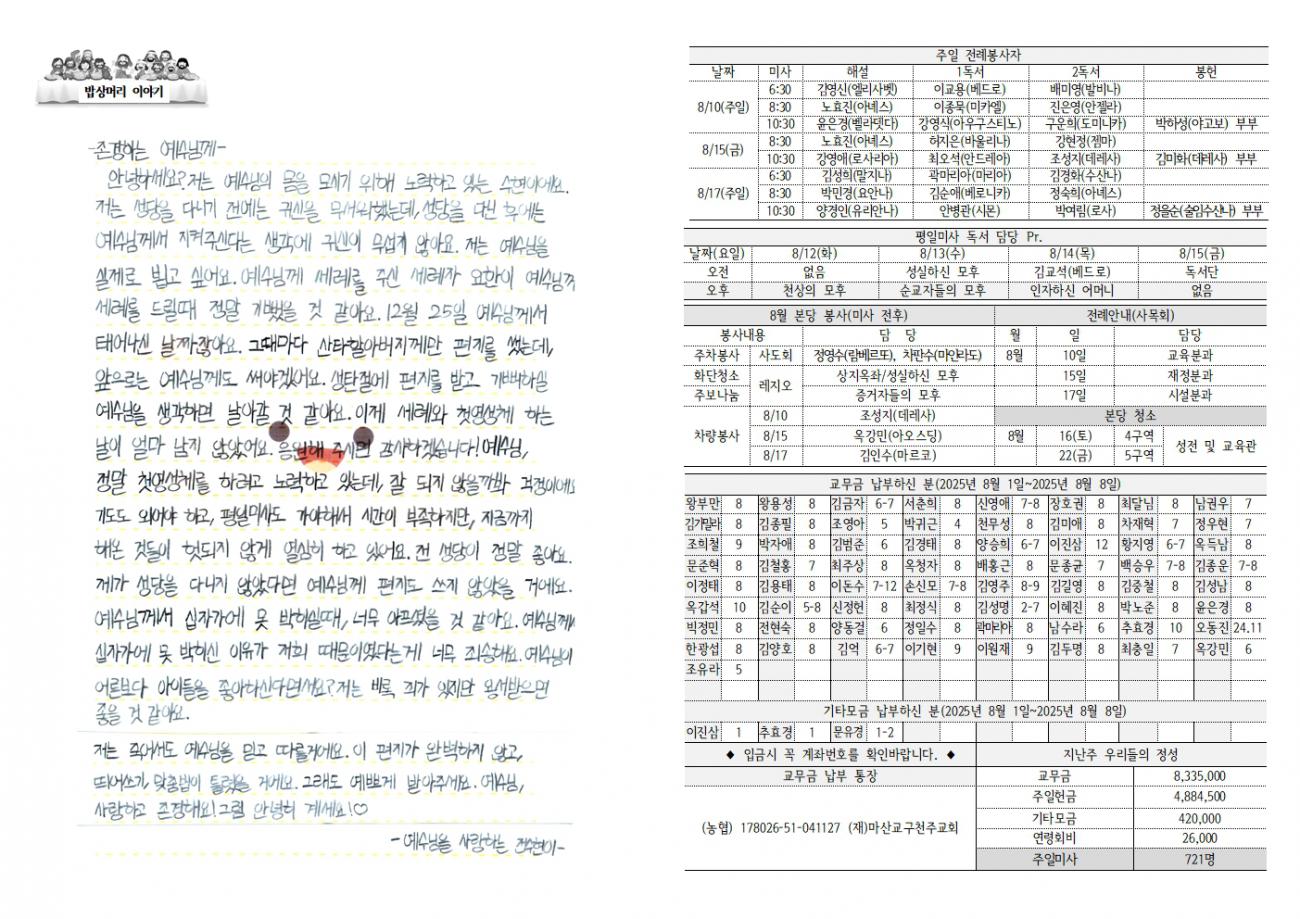 밥상머리 이야기
-존경하는 예수님께-
안녕하세요? 저는 예수님의 몸을 모시기 위해 노력하고 있는 수현이에요.
저는 성당을 다니기 전에는 귀신을 무서워했는데, 성당을 다닌 후에는
예수님께서 지켜주신다는 생각에 귀신이 무섭지 않아요. 저는 예수님을
실제로 뵙고 싶어요. 예수님께 세례를 주신 세례자 요한이 예수님께
세례를 드릴때 정말 기뻤을 것 같아요. 12월 25일 예수님께서
태어나신 날짜잖아요. 그때마다 산타할아버지께만 편지를 썼는데,
앞으로는 예수님께도 써야겠어요. 성탄절에 편지를 받고 기뻐하실
예수님을 생각하면 날아갈 것 같아요. 이제 세례와 첫영성체 하는
날이 얼마 남지 않았어요. 응원해 주시면 감사하겠습니다! 예수님,
정말 첫영성체를 하려고 노력하고 있는데, 잘 되지 않을까봐 걱정이에요
기도도 외어야 하고, 평일미사도 가야해서 시간이 부족하지만, 지금까지
해온 것들이 헛되지 않게 열심히 하고 있어요. 전 성당이 정말 좋아요.
제가 성당을 다니지 않았다면 예수님께 편지도 쓰지 않았을 거에요.
예수님께서 십자가에 못 박히실때, 너무 아프셨을 것 같아요. 예수님께
십자가에 못 박히신 이유가 저희 때문이였다는게 너무 죄송해요. 예수님이
어른보다 아이들을 좋아하신다면서요? 저는 비록 죄가 있지만 용서받으면
좋을 것 같아요.
저는 죽어서도 예수님을 믿고 따를거에요. 이 편지가 완벽하지 않고,
띄어쓰기, 맞춤법이 틀렸을 거에요. 그래도 예쁘게 받아주세요. 예수님,
사랑하고 존경해요! 그럼 안녕히 계세요!♡
-예수님을 사랑하는 전수현이-
주일 전례봉사자
날짜 미사 해설 1독서 2독서 봉헌
8/10(주일) 6:30 김영신(엘리사벳) 이교용(베드로) 배미영(발비나)
8:30 노효진(아녜스) 이종묵(미카엘) 진은영(안젤라)
10:30 윤은경(벨라뎃다) 강영식(아우구스티노) 구운희(도미니카) 박하성(야고보) 부부
8/15(금) 8:30 노효진(아녜스) 허지은(바울리나) 강현정(젬마)
10:30 강영애(로사리아) 최오석(안드레아) 조성지(데레사) 김미화(데레사) 부부
8/17(주일) 6:30 김성희(말지나) 곽마리아(마리아) 김경화(수산나)
8:30 박민경(요안나) 김순애(베로니카) 정숙희(아녜스)
10:30 양경인(유리안나) 안병관(시몬) 박여림(로사) 정을순(술임수산나) 부부
평일미사 독서 담당 Pr.
날짜(요일) 8/12(화) 8/13(수) 8/14(목) 8/15(금)
오전 없음 성실하신 모후 김교석(베드로) 독서단
오후 천상의 모후 순교자들의 모후 인자하신 어머니 없음
8월 본당 봉사(미사 전후) 전례안내(사목회)
봉사내용 담 당 월 일 담당
주차봉사 사도회 정영수(람베르또), 차판수(마인라도) 8월 10일 교육분과
화단청소 레지오 상지옥좌/성실하신 모후 15일 재정분과
주보나눔 증거자들의 모후 17일 시설분과
차량봉사 8/10 조성지(데레사) 본당 청소
8/15 옥강민(아오스딩) 8월 16(토) 4구역 성전 및 교육관
8/17 김인수(마르코) 22(금) 5구역
교무금 납부하신 분(2025년 8월 1일~2025년 8월 8일)
왕부만 8 왕용성 8 김금자 6-7 서춘희 8 신영애 7-8 장호권 8 최달님 8 남권우 7
김가밀라 8 김종필 8 조영아 5 박귀근 4 천무성 8 김미애 8 차재혁 7 정우현 7
조희철 9 박자애 8 김범준 6 김경태 8 양승희 6-7 이진삼 12 황지영 6-7 옥득남 8
문준혁 8 김철홍 7 최주상 8 옥청자 8 배홍근 8 문종균 7 백승우 7-8 김종운 7-8
이정태 8 김용태 8 이돈수 7-12 손신모 7-8 김영주 8-9 김길영 8 김중철 8 김성남 8
옥갑석 10 김순이 5-8 신정헌 8 최정식 8 김성명 2-7 이혜진 8 박노준 8 윤은경 8
빅정민 8 전현숙 8 양동걸 6 정일수 8 곽마리아 8 남수라 6 추효경 10 오동진 24.11
한광섭 8 김양호 8 김억 6-7 이기현 9 이원재 9 김두명 8 최충일 7 옥강민 6
조유라 5
기타모금 납부하신 분(2025년 8월 1일~2025년 8월 8일)
이진삼 1 추효경 1 문유경 1-2
◆ 입금시 꼭 계좌번호를 확인바랍니다. ◆ 지난주 우리들의 정성
교무금 납부 통장 교무금 8,335,000
(농협) 178026-51-041127 (재)마산교구천주교회 주일헌금 4,884,500
기타모금 420,000
연령회비 26,000
주일미사 721명